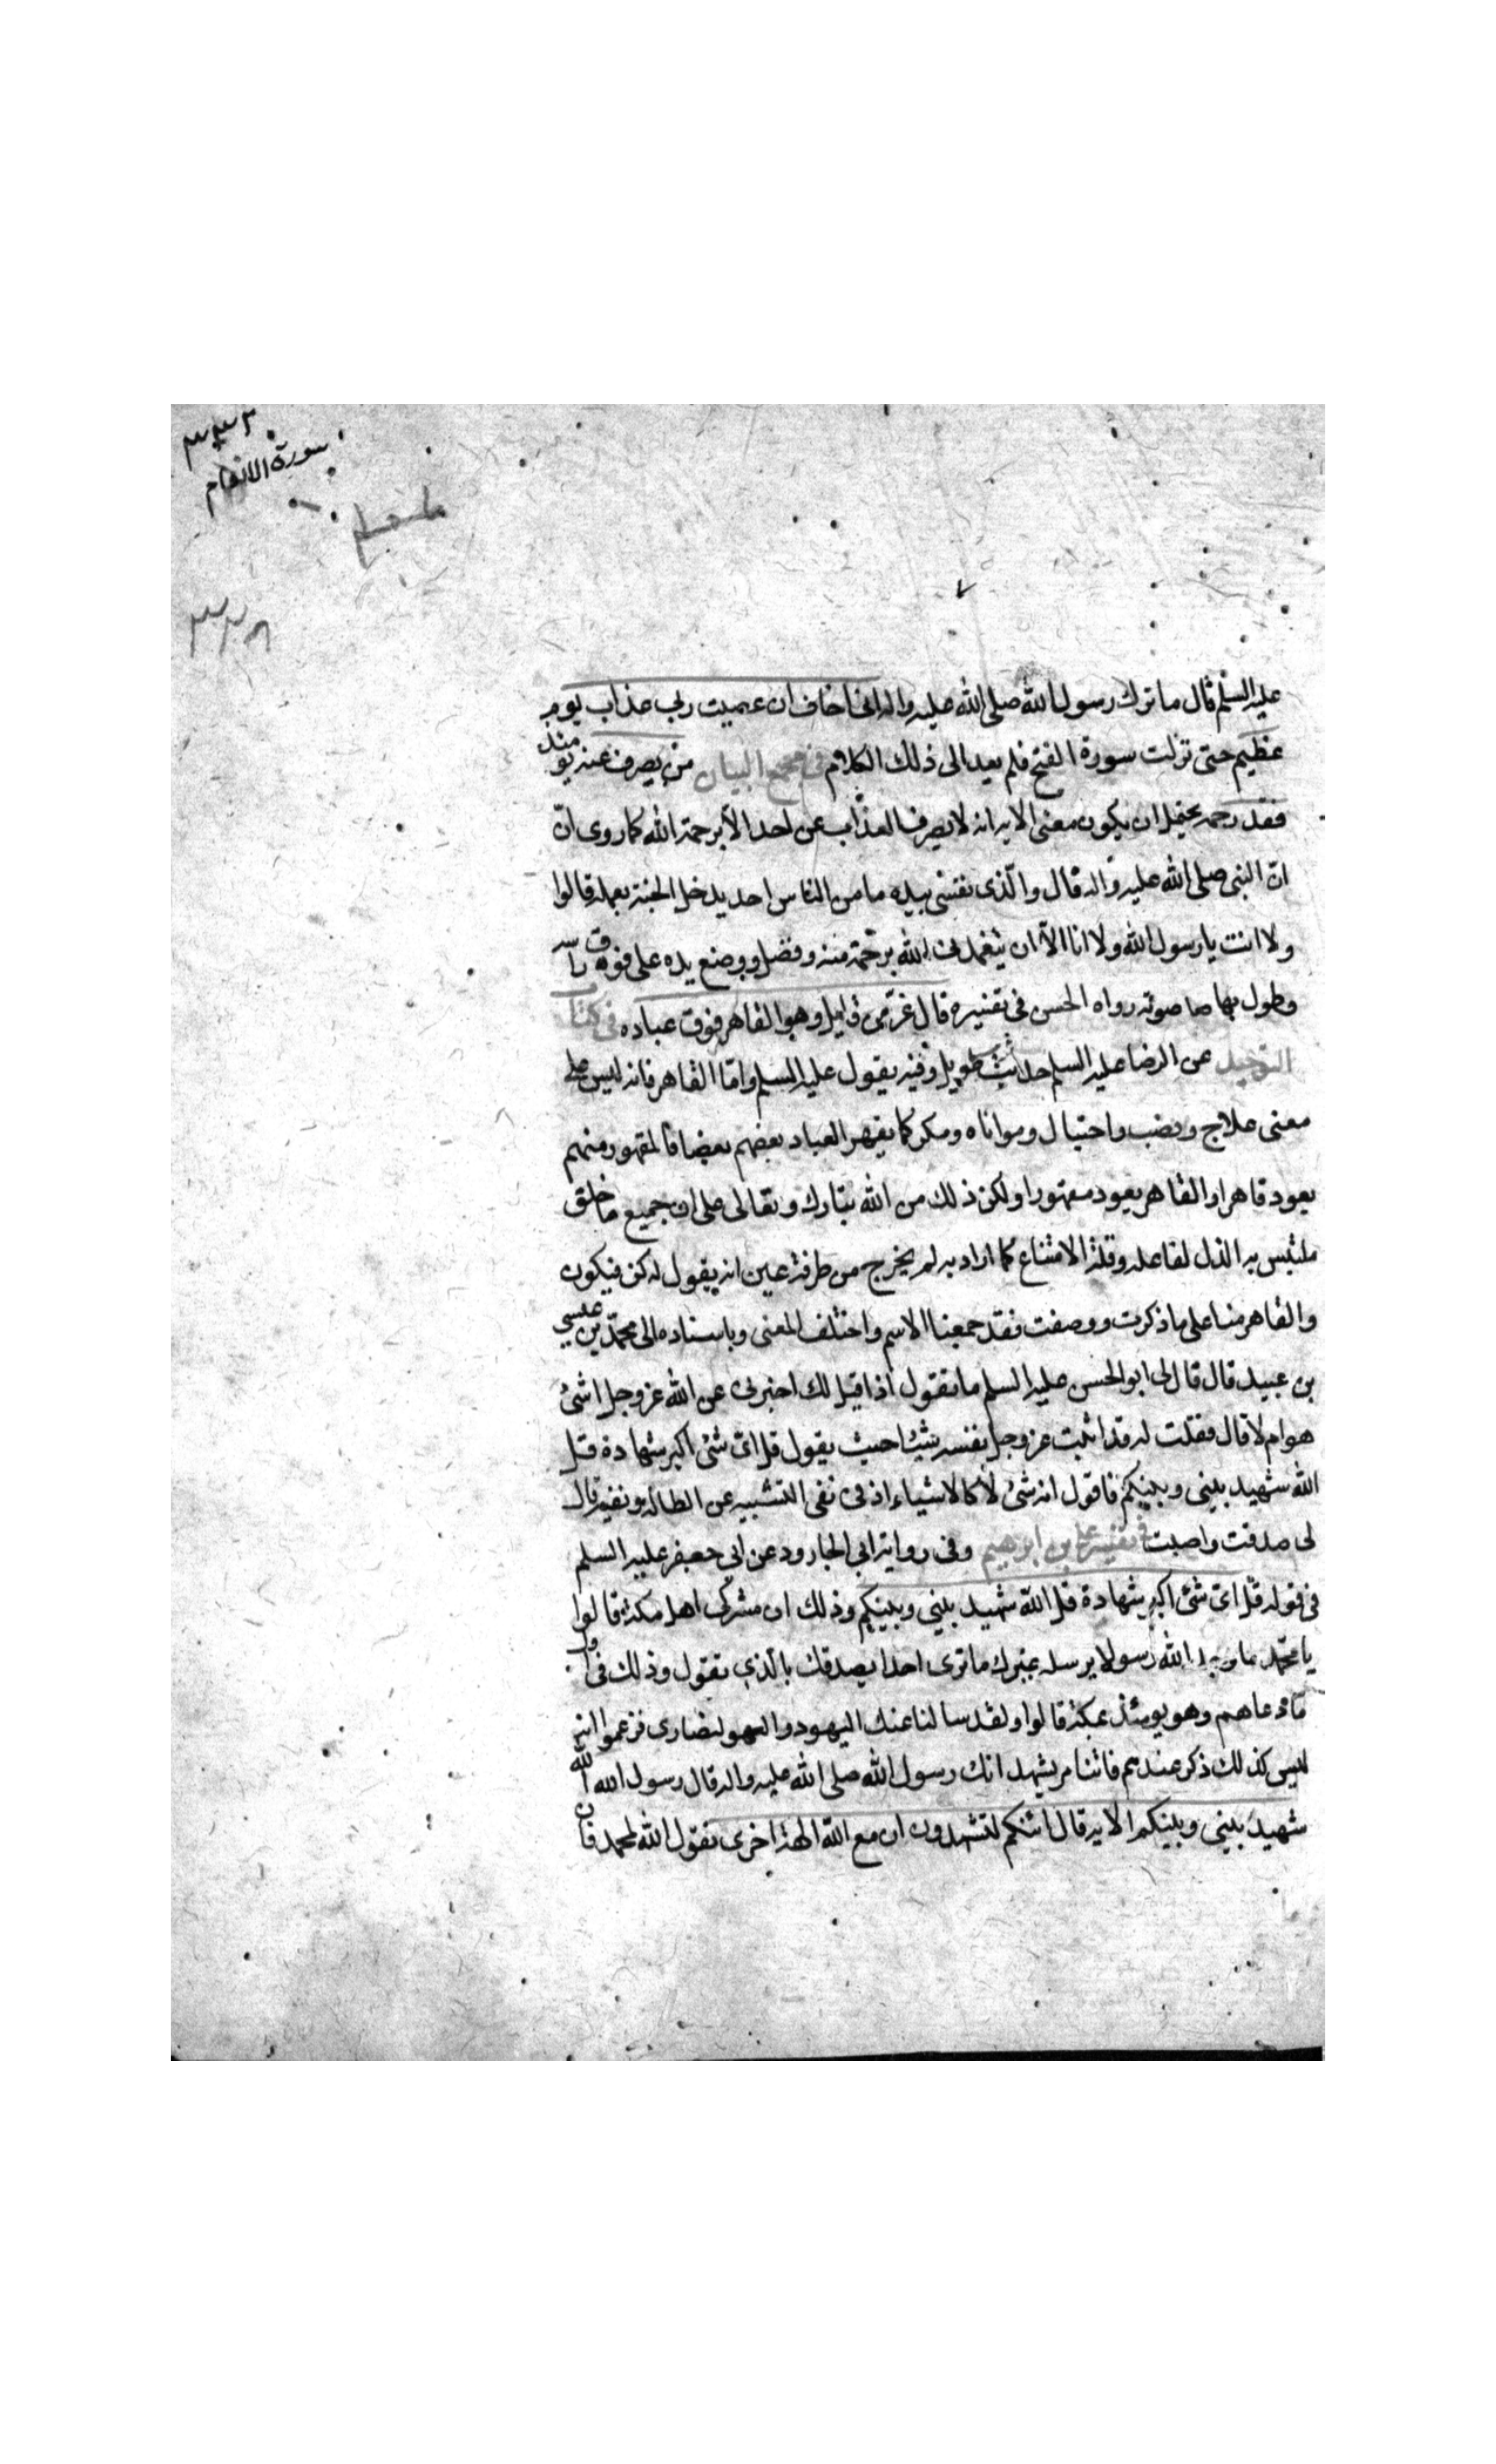 ٣٣٢
سورة الانعام
٣٣٨
عليه السلم قال ما ترك رسول الله صلى الله عليه واله انى اخاف ان عصيت ربى عذاب يوم
عظيم حتى نزلت سورة الفتح فلم يعد الى ذلك الكلام فى مجمع البيان من يصرف عنه يومئذ
فقد رحمه يحتمل ان يكون معنى الايه انه لا يصرف العذاب عن احد الا برحمة الله كما روى انّ
انّ النبى صلى الله عليه واله قال والّذى نفسى بيده ما من الناس احد يدخل الجنة بعمله قالوا
ولا انت يا رسول الله ولا انا الاّ ان يتغمدنى الله برحمة منه وفضل ووضع يده على فوق راسه
وطول بها صوته رواه الحسن فى تفسيره قال عزّ من قايل وهو القاهر فوق عباده فى كتاب
التوحيد عن الرضا عليه السلم حديث طويل وفيه يقول عليه السلم وامّا القاهر فانه ليس على
معنى علاج ونصب واحتيال ومداراه ومكر كما يقهر العباد بعضهم بعضا فالمقهور منهم
يعود قاهرا والقاهر يعود مقهورا ولكن ذلك من الله تبارك وتعالى على ان جميع ما خلق
ملتبس به الذل لفاعله وقلة الامتناع كما اراد به لم يخرج من طرفة عين انه يقول له كن فيكون
والقاهر منا على ما ذكرت ووصفت فقد جمعنا الاسم واختلف المعنى وباسناده الى محمّد بن عيسى
بن عبيد قال قال لى ابو الحسن عليه السلم ما تقول اذا قيل لك اخبرنى عن الله عز وجل اشئ
هو ام لا قال فقلت له قد اثبت عز وجل نفسه شيئا حيث يقول قل اىّ شئ اكبر شهادة قل
الله شهيد بينى وبينكم فاقول انه شئ لا كالاشياء اذ فى نفى التشبيه عن ونفيه قال
لى صدقت واصبت فى تفسير على بن ابرهيم وفى رواية ابى الجارود عن ابى جعفر عليه السلم
فى قوله قل اىّ شئ اكبر شهادة قل الله شهيد بينى وبينكم وذلك ان مشركى اهل مكة قالوا
يا محمّد ما وجد الله رسولا يرسله غيرك ما ترى احدا يصدقك بالّذى تقول وذلك فى اول
ما دعاهم وهو يومئذ بمكة قالوا ولقد سالنا عنك اليهود والنصارى فزعموا انه
ليس كذلك ذكر عندهم فاتنا من يشهد انك رسول الله صلى الله عليه واله قال رسول الله الله
شهيد بينى وبينكم الايه قال ائنكم لتشهدون ان مع الله الهة اخرى يقول الله لمحمد فان